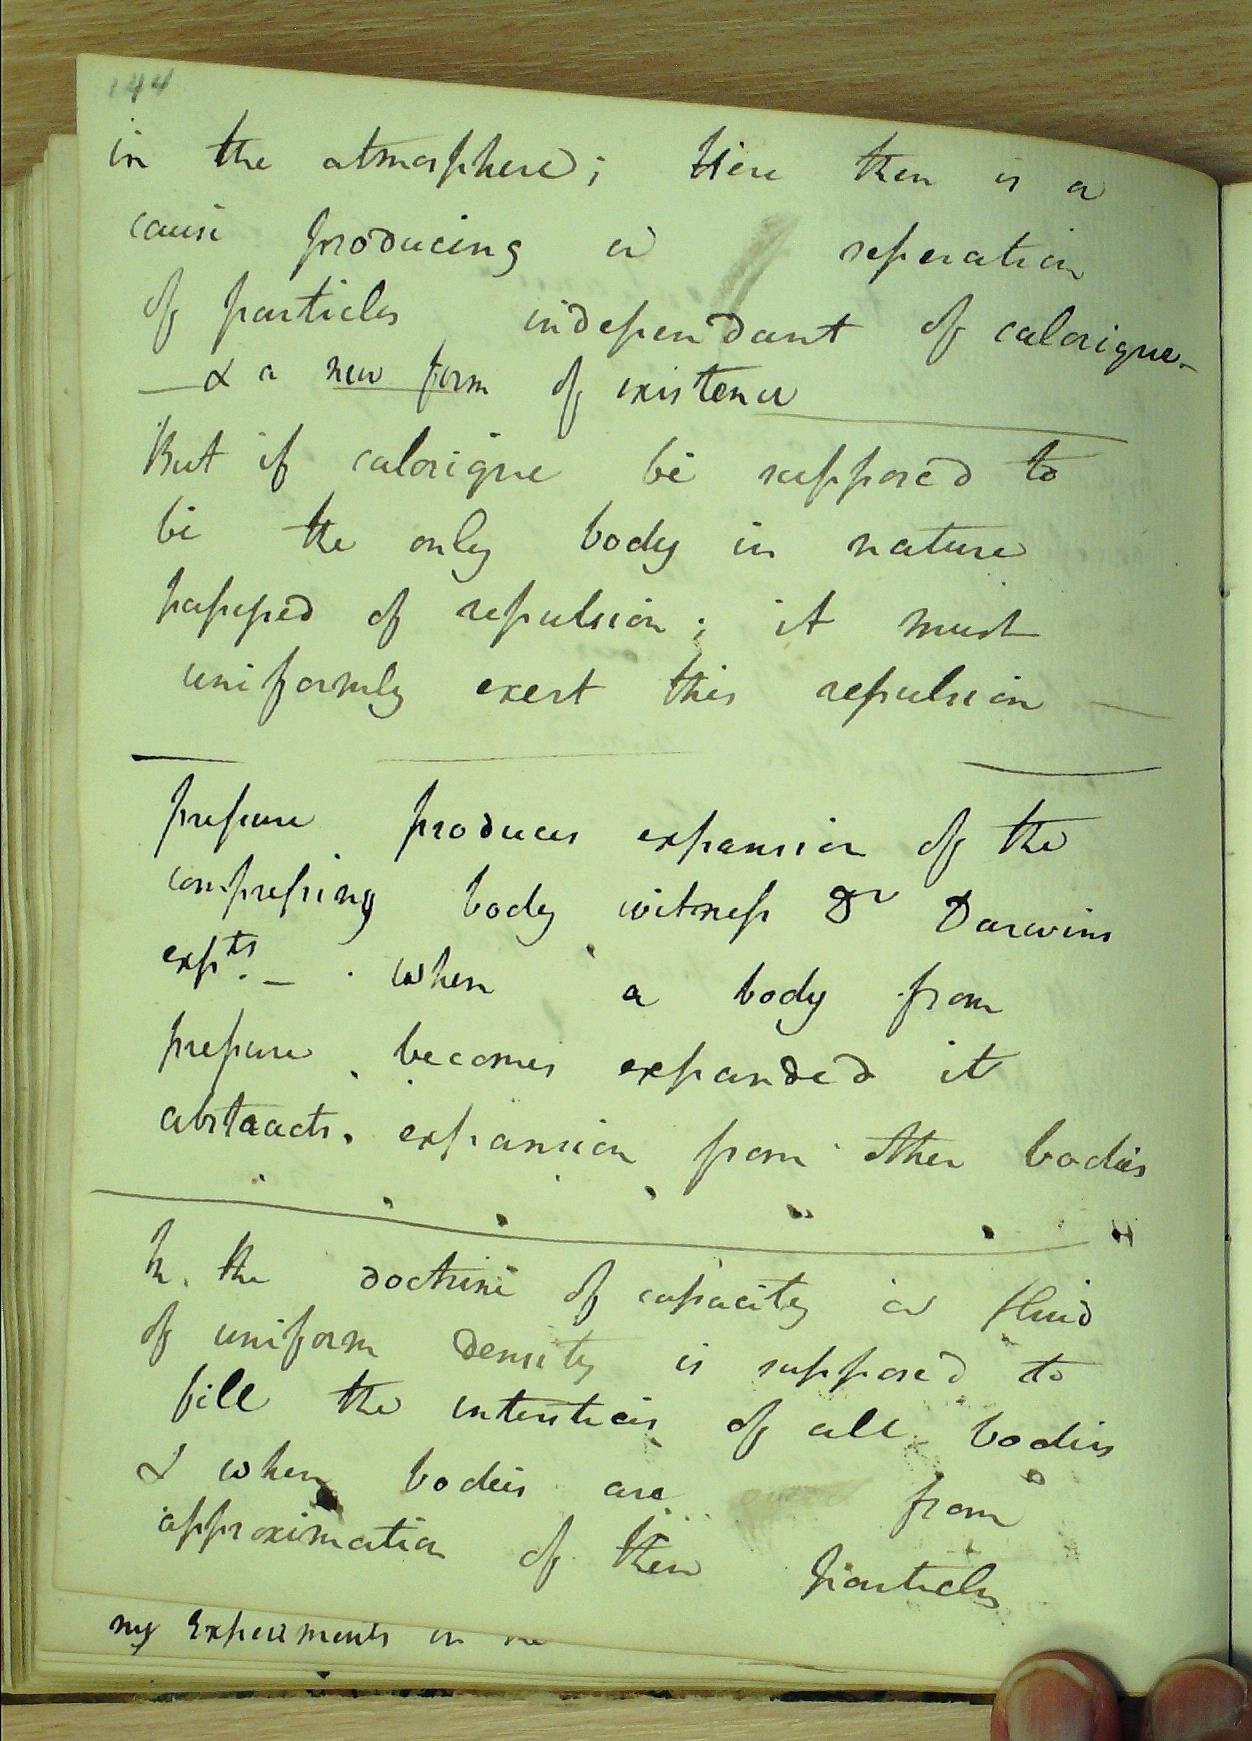 144
in the atmosphere; Here then is a
cause producing a seperation
of particles independant of calorique -
— & a new form of existence
But if calorique be supposed to
be the only body in nature
possessed of repulsion; it must
uniformly exert this repulsion —
pressure produces expansion of the
compressing body witness Dr Darwins
expts. — when a body from
pressure becomes expanded it
abstracts. expansion from other bodies
In the doctrine of capacity a fluid
of uniform density is supposed to
fill the interstices of all bodies
& when bodies are from
approximation of their particles
my Experiments on the